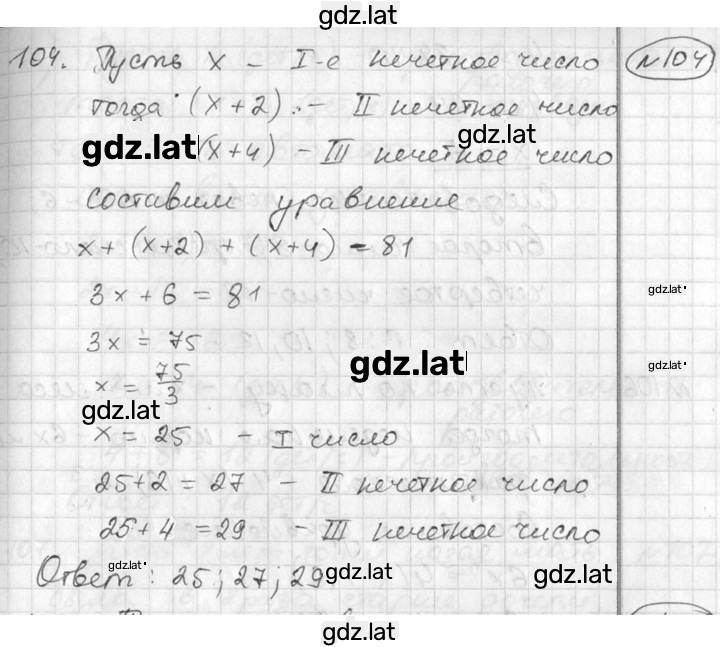 gdz.lat
104. Пусть x – I-е нечетное число
№104
тогда (x+2) – II нечетное число
gdz.lat
gdz.lat (x+4) – III нечетное число
составим уравнение
x + (x+2) + (x+4) = 81
3x + 6 = 81
gdz.lat
3x = 75
gdz.lat
gdz.lat
x = 75/3
gdz.lat
x = 25 – I число
25+2 = 27 – II нечетное число
25+4 = 29 – III нечетное число
gdz.lat
Ответ: 25; 27; 29
gdz.lat
gdz.lat
gdz.lat